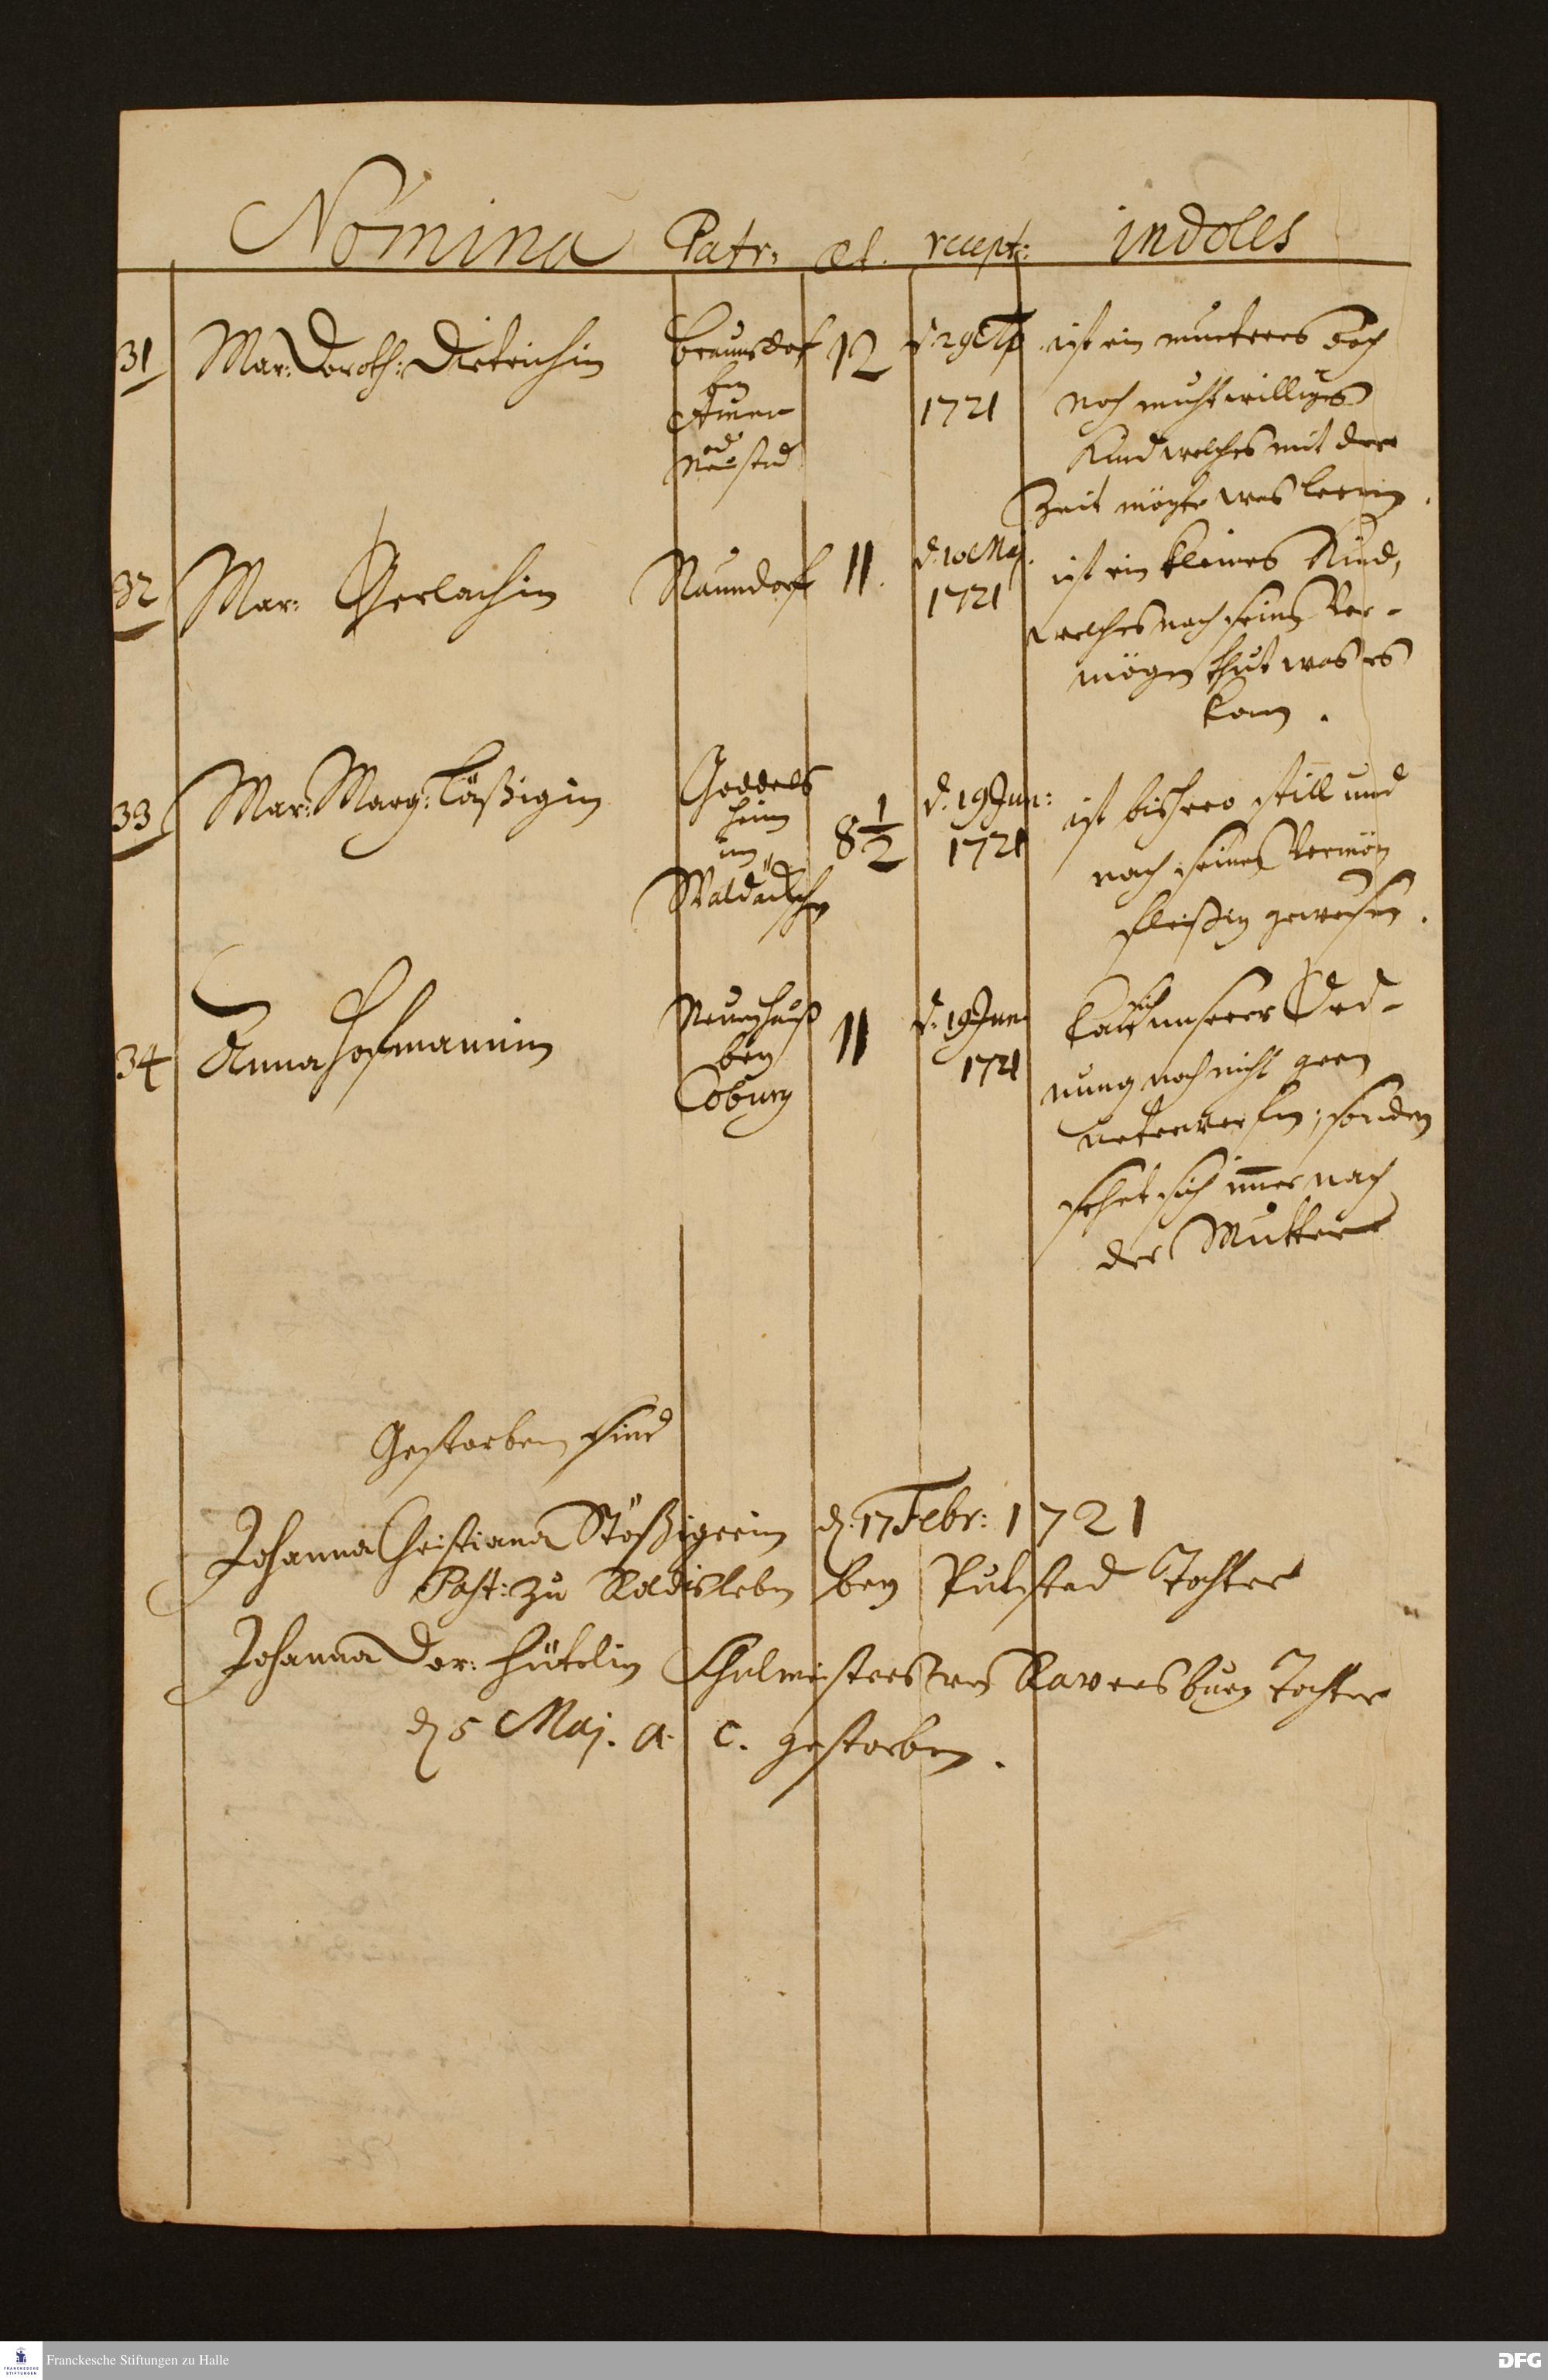 Nomina Patr. æt. recept: indoles
31 Mar: Doroth: Dietrichin Braunsdorf 12 d. 29 1721 ist ein munteres doch
bey noch muthwilliges
Neustad Kind welches mit der
Zeit möchte was lernen.
32 Mar: Gerlachin Naundorf 11. d. 10 Maj. 1721 ist ein kleines Kind,
welches nach seinen Ver-
mögen thut was es
kan.
33 Mar: Marg: Läßigin Goddels 8 1/2 d. 19 Jun: 1721 ist bishero still und
heim nach seinen Vermög
im fleißig gewesen.
34 Anna Hofmannin Neuenhauß 11 d. 19 Jun 1721 sich unserer Ord-
bey nung noch nicht gern
Coburg unterwerfen; sondern
sehnt sich im̄er nach
der Mutter
Gestorben sind
Johanna Christiana Stößigerin d. 17 Febr: 1721
Past: zu Roldisleben bey Tochter
Johanna Dor: Hütelin Schulmeisters Ravensburg Tochter
d 5 Maj. a. c. gestorben.
Franckesche Stiftungen zu Halle
DFG